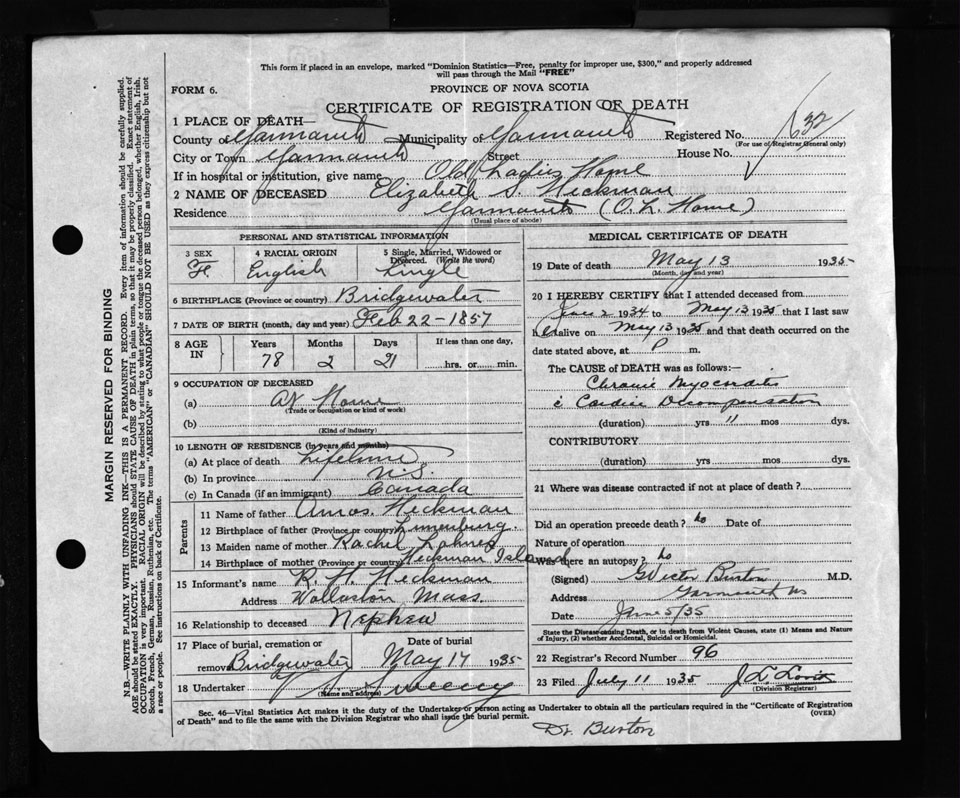 This form if placed in an envelope, marked "Dominion Statistics—Free, penalty for improper use, $300," and properly addressed
will pass through the Mail "FREE"
FORM 6.
PROVINCE OF NOVA SCOTIA
CERTIFICATE OF REGISTRATION OF DEATH
1 PLACE OF DEATH—
County of Yarmouth Municipality of Yarmouth Registered No. 632
(For use of Registrar General only)
City or Town Yarmouth Street House No.
If in hospital or institution, give name Old Ladies Home
2 NAME OF DECEASED Elizabeth S. Heckman
Residence Yarmouth (O.L. Home)
(Usual place of abode)
PERSONAL AND STATISTICAL INFORMATION
3 SEX 4 RACIAL ORIGIN 5 Single, Married, Widowed or Divorced. (Write the word)
F English Single
6 BIRTHPLACE (Province or country) Bridgewater
7 DATE OF BIRTH (month, day and year) Feb 22-1857
8 AGE IN Years Months Days If less than one day,
78 2 21 hrs. or min.
9 OCCUPATION OF DECEASED
(a) At Home
(Trade or occupation or kind of work)
(b)
(Kind of industry)
10 LENGTH OF RESIDENCE (in years and months)
(a) At place of death Lifetime
(b) In province N.S.
(c) In Canada (if an immigrant) Canada
Parents
11 Name of father Amos Heckman
12 Birthplace of father (Province or country) Lunenburg.
13 Maiden name of mother Rachel
14 Birthplace of mother (Province or country) Heckman Island
15 Informant's name R. H. Heckman
Address Wollaston Mass.
16 Relationship to deceased Nephew
17 Place of burial, cremation or removal Date of burial
Bridgewater May 17 1935
18 Undertaker Sweeny
(Name and address)
MEDICAL CERTIFICATE OF DEATH
19 Date of death May 13 1935
(Month, day and year)
20 I HEREBY CERTIFY that I attended deceased from
Jan 2 1934 to May 13 1935 that I last saw
her alive on May 13 1935 and that death occurred on the
date stated above, at P m.
The CAUSE of DEATH was as follows:—
Chronic Myocarditis
c̄ Cardiac Decompensation
(duration) yrs 11 mos dys.
CONTRIBUTORY
(duration) yrs mos dys.
21 Where was disease contracted if not at place of death?
Did an operation precede death? no Date of
Nature of operation
Was there an autopsy? no
(Signed) G Victor Burton M.D.
Address Yarmouth NS
Date June 5/35
State the Disease causing Death, or in death from Violent Causes, state (1) Means and Nature
of Injury, (2) whether Accidental, Suicidal or Homicidal.
22 Registrar's Record Number 96
23 Filed July 11 1935
(Division Registrar)
Sec. 46—Vital Statistics Act makes it the duty of the Undertaker or person acting as Undertaker to obtain all the particulars required in the "Certificate of Registration
of Death" and to file the same with the Division Registrar who shall issue the burial permit. (OVER)
Dr. Burton
MARGIN RESERVED FOR BINDING
N.B.—WRITE PLAINLY WITH UNFADING INK—THIS IS A PERMANENT RECORD. Every item of information should be carefully supplied.
AGE should be stated EXACTLY. PHYSICIANS should STATE CAUSE OF DEATH in plain terms, so that it may be properly classified. Exact statement of
OCCUPATION is very important. RACIAL ORIGIN will be described by stating to what people or tongue the deceased person belonged, whether English, Irish,
Scotch, French, German, Russian, Ruthenian, etc. The terms "AMERICAN" or "CANADIAN" SHOULD NOT BE USED as they express citizenship but not
a race or people. See instructions on back of Certificate.